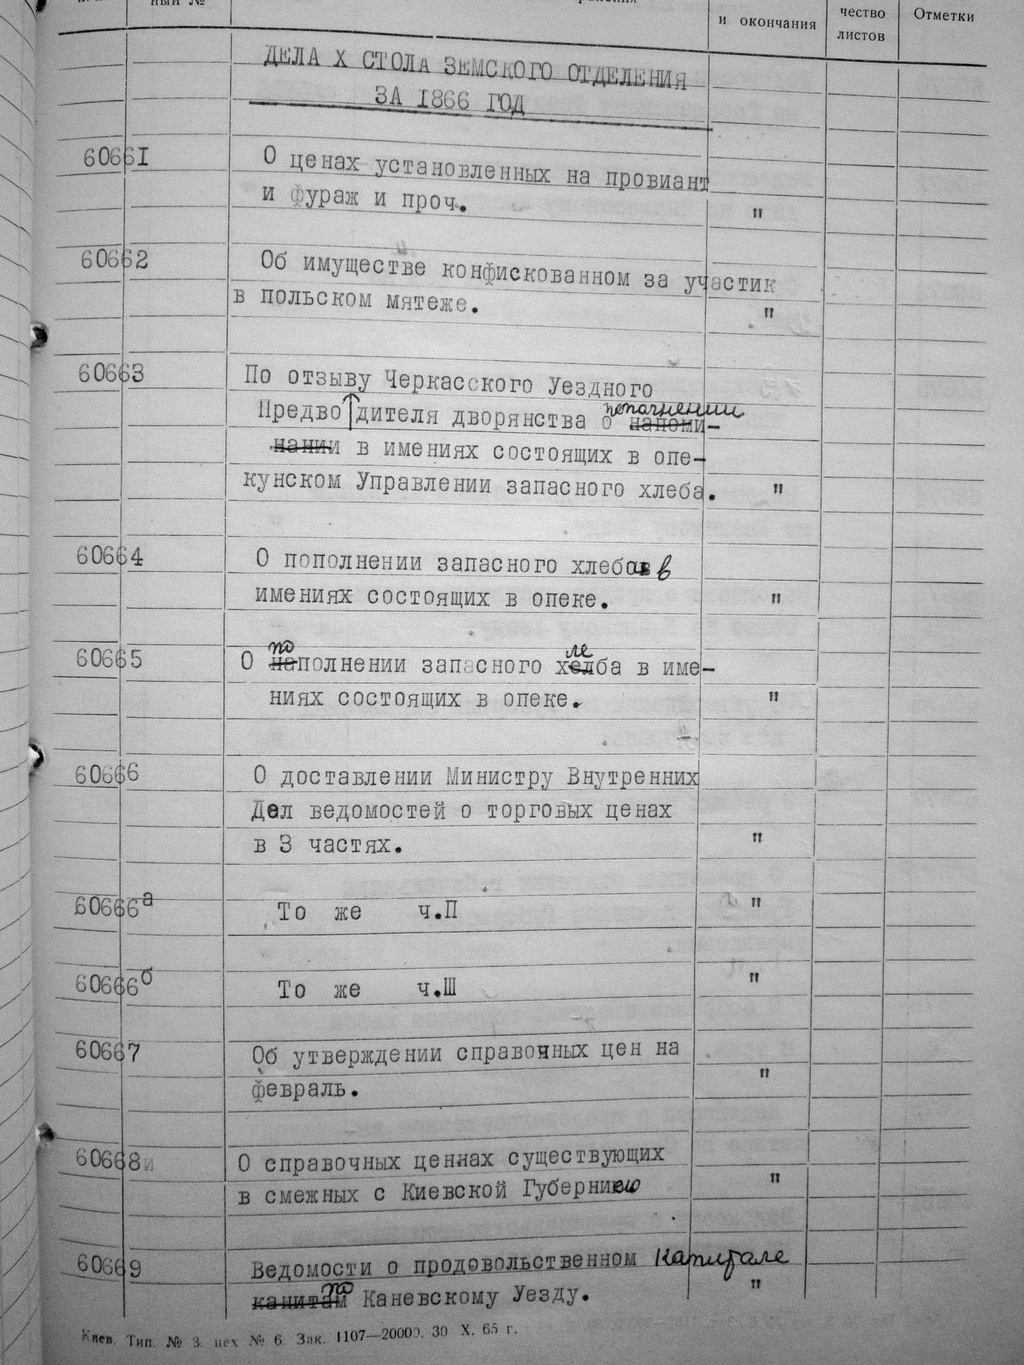 ный №
и окончания
чество
листов
Отметки
ДЕЛА X СТОЛА ЗЕМСКОГО ОТДЕЛЕНИЯ
ЗА 1866 ГОД
60661 О ценах установленных на провиант
и фураж и проч. "
60662 Об имуществе конфискованном за участик
в польском мятеже. "
60663 По отзыву Черкасского Уездного
Предводителя дворянства о напоми- пополнении
нании в имениях состоящих в опе-
кунском Управлении запасного хлеба. "
60664 О пополнении запасного хлеба в
имениях состоящих в опеке. "
60665 О наполнении запасного хелба в име-
по ле
ниях состоящих в опеке. "
60666 О доставлении Министру Внутренних
Дел ведомостей о торговых ценах
в 3 частях. "
60666а То же ч.П "
60666б То же ч.Ш "
60667 Об утверждении справочных цен на
февраль. "
60668 О справочных ценнах существующих
в смежных с Киевской Губернию "
60669 Ведомости о продовольственном капитале
канитам по Каневскому Уезду. "
Киев. Тип. № 3. цех № 6. Зак. 1107—20000. 30 X. 65 г.